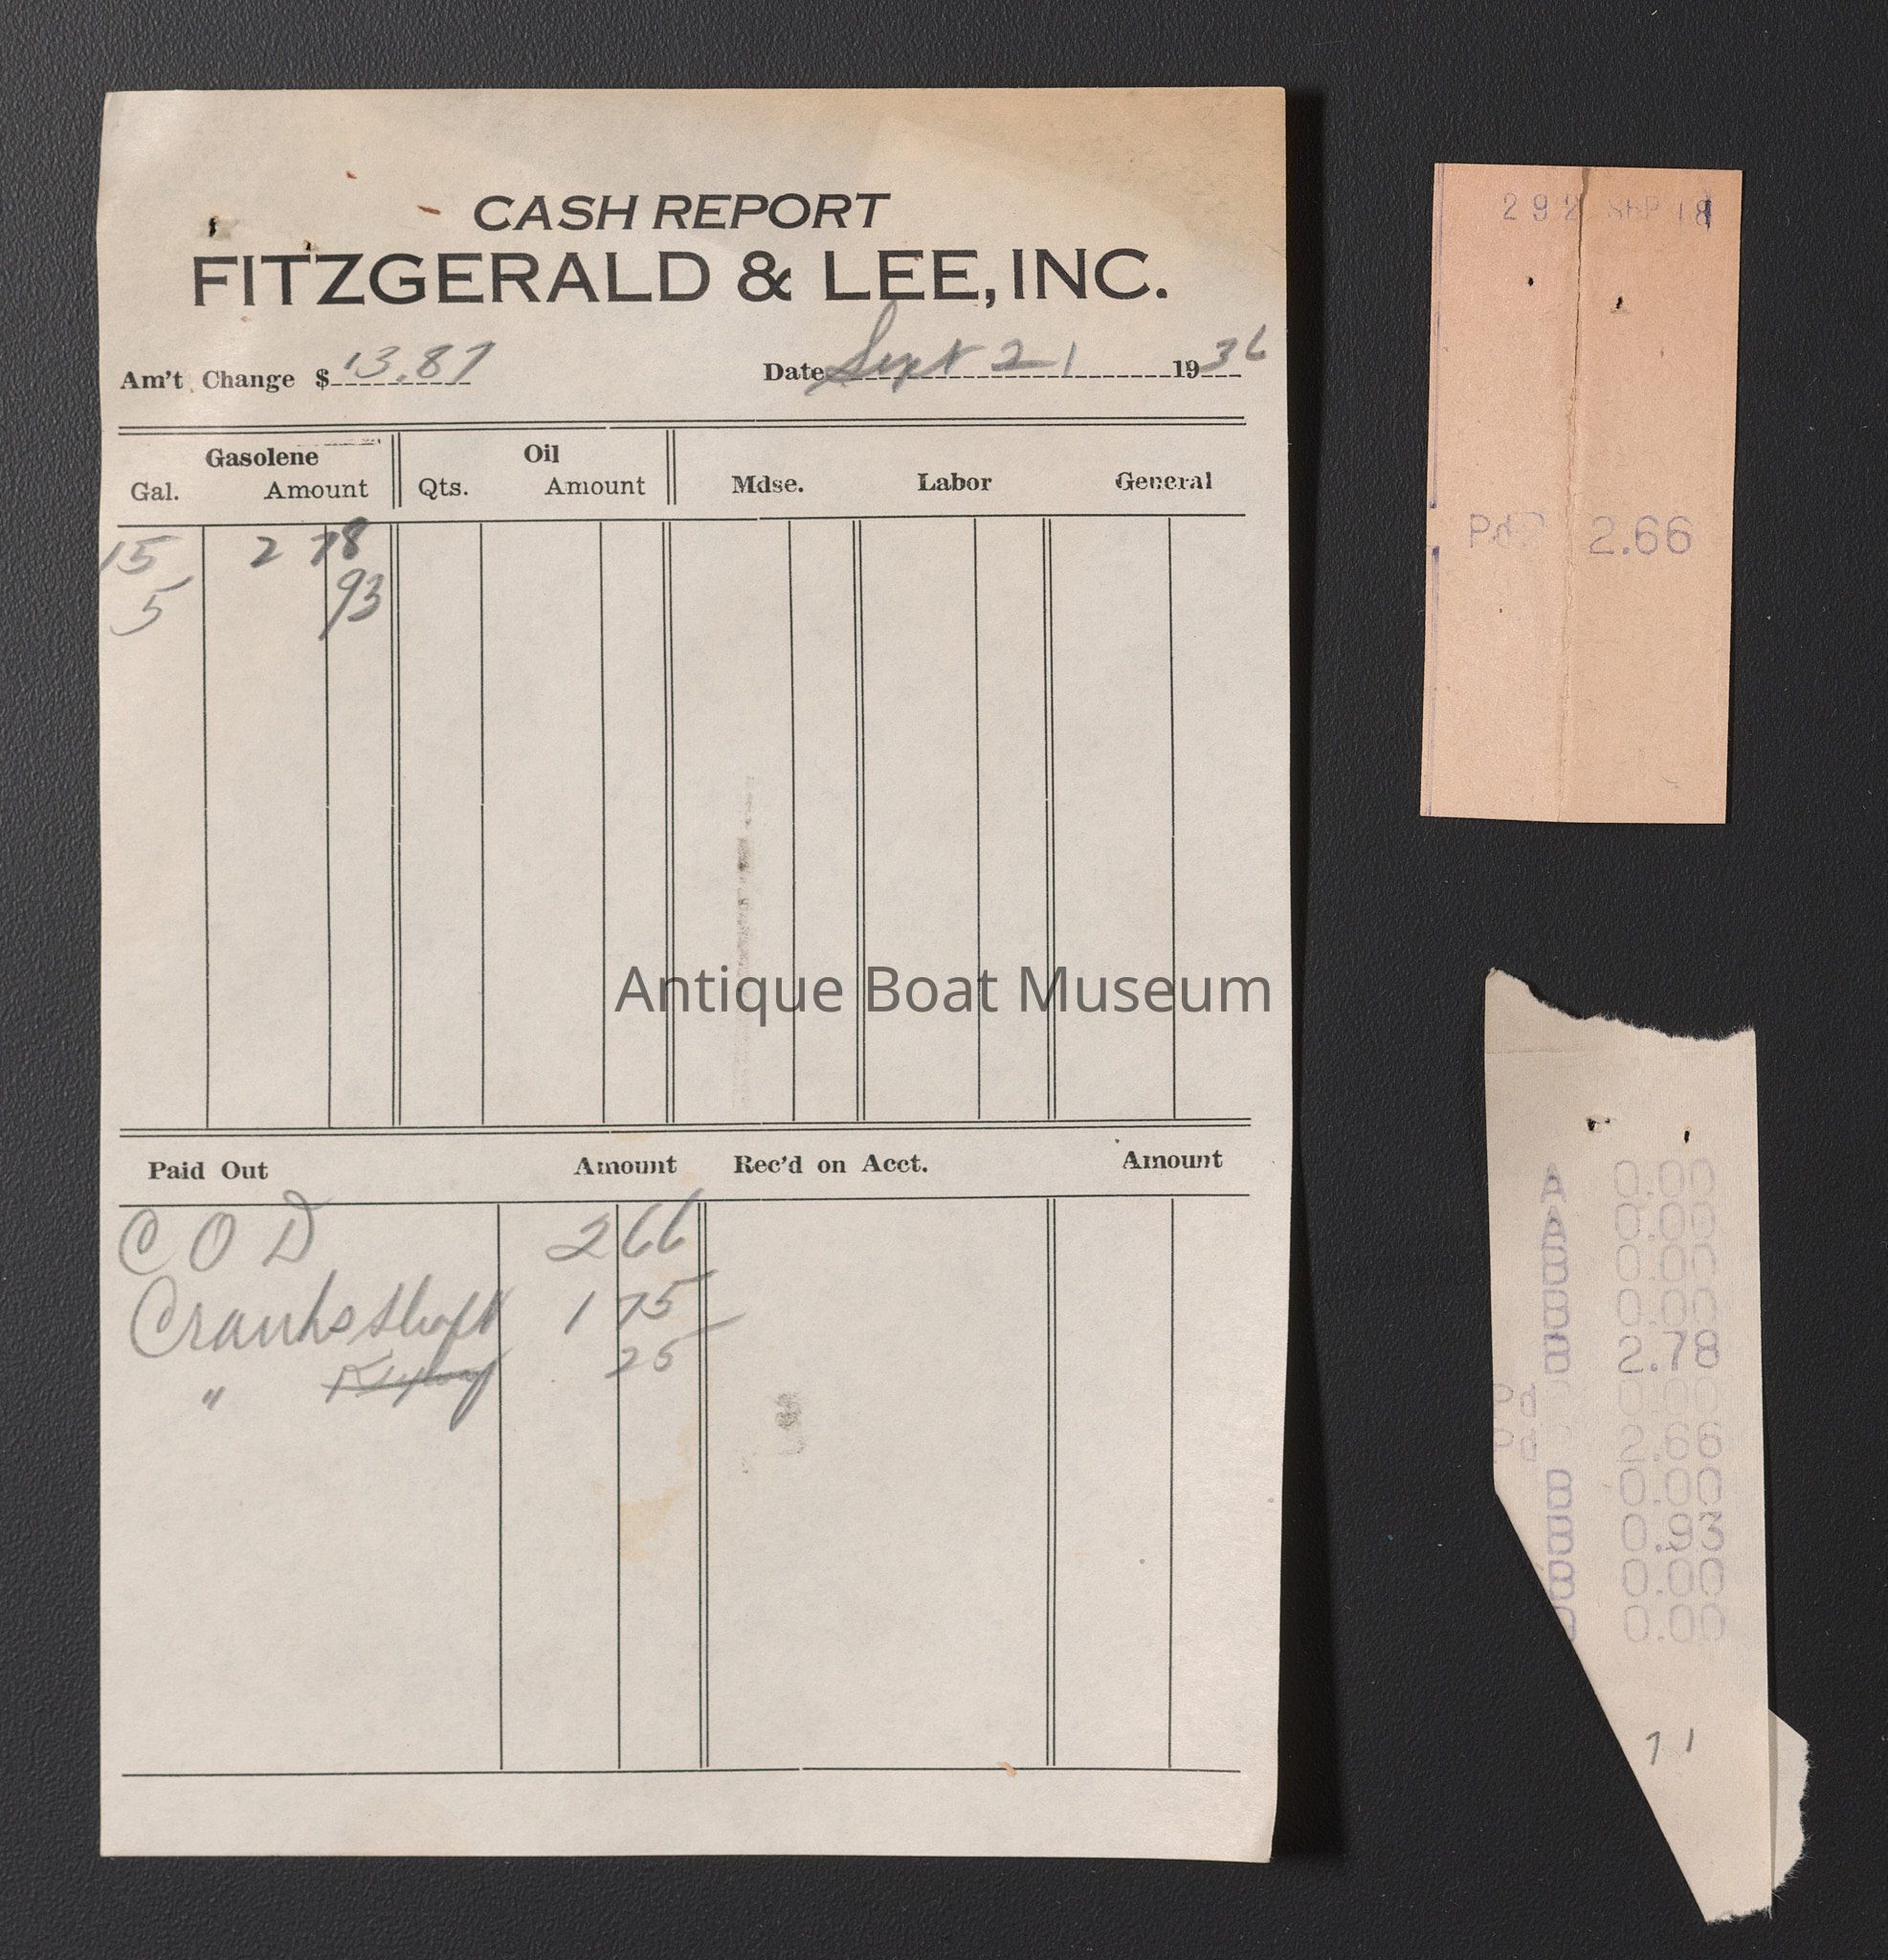 CASH REPORT
FITZGERALD & LEE, INC.
Am't Change $ 13.87 Date Sept 21 1936
Gasolene Oil
Gal. Amount Qts. Amount Mdse. Labor General
15 2 78
5 93
Paid Out Amount Rec'd on Acct. Amount
C O D 2 66
Crankshaft 1 75
" 25
Antique Boat Museum
292 SEP 18
Pd 2.66
A 0.00
A 0.00
B 0.00
B 0.00
B 2.78
Pd 0.00
Pd 2.66
B 0.00
B 0.93
B 0.00
0.00